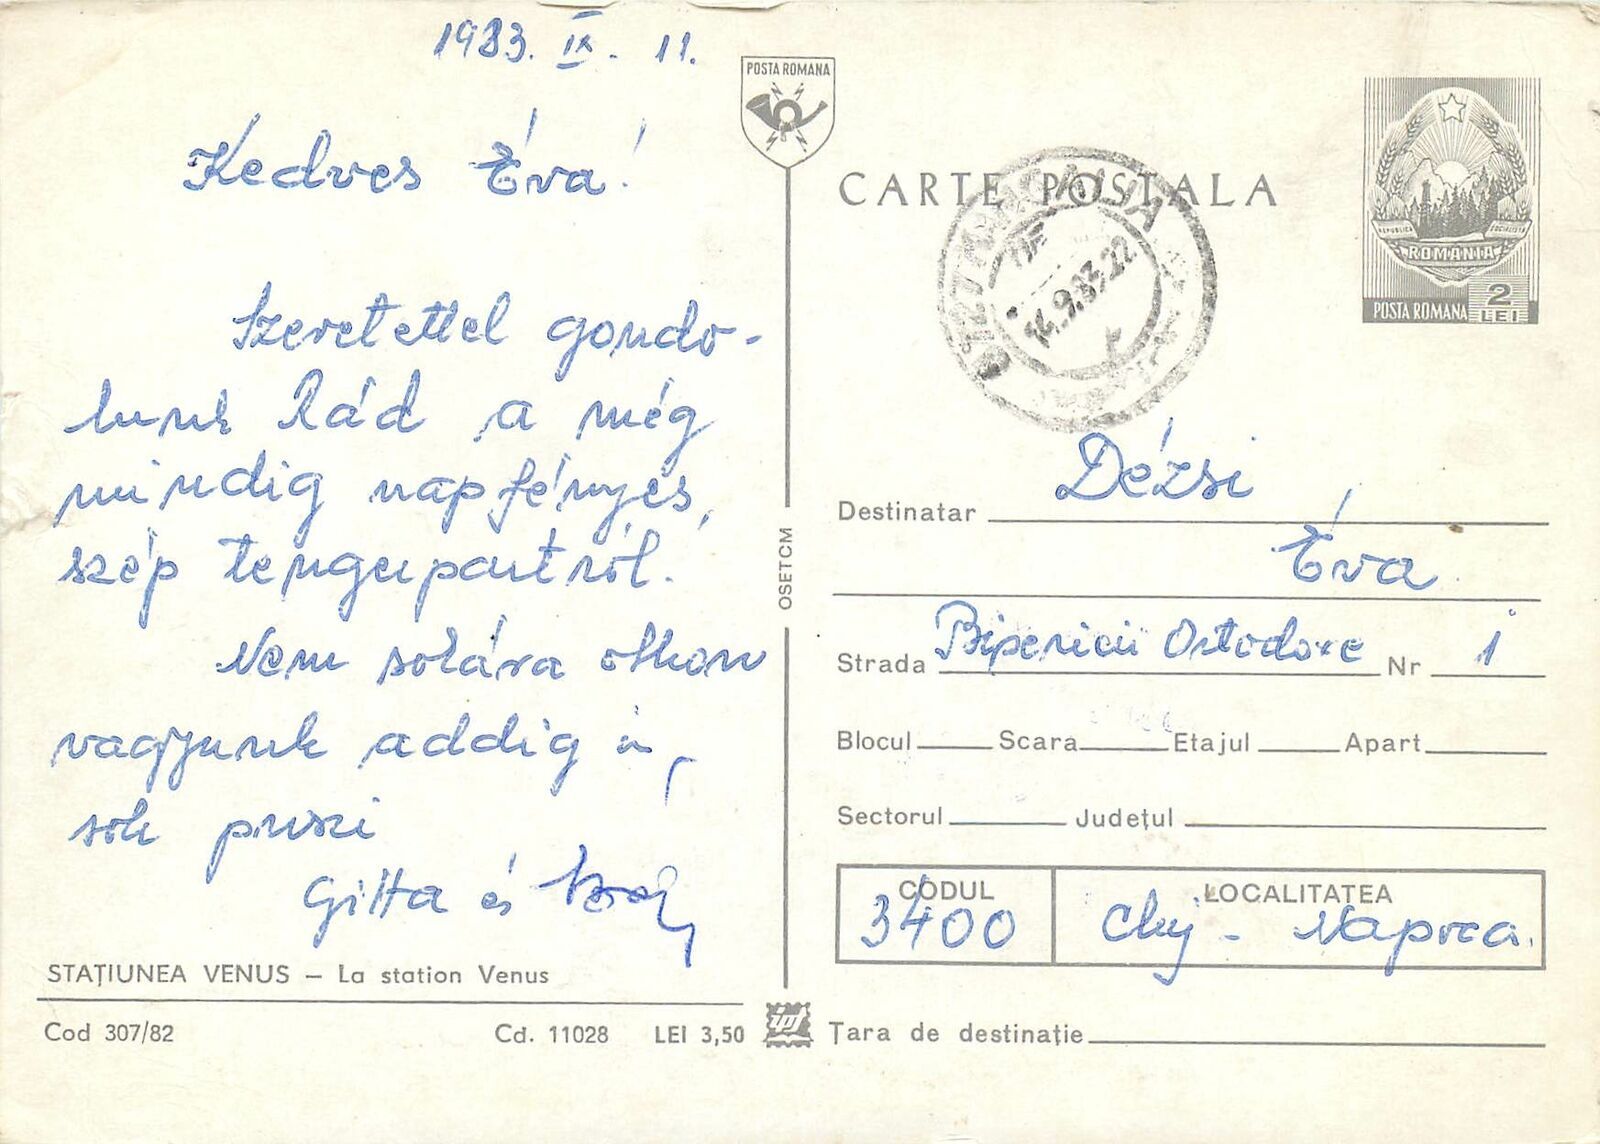 1983. IX. 11.
Kedves Éva!
Szeretettel gondo-
lunk Rád a még
mindig napfényes,
szép tengerpartról.
Nem sokára otthon
vagyunk addig is,
sok puszi
Gitta és
STAȚIUNEA VENUS – La station Venus
Cod 307/82 Cd. 11028 LEI 3,50
ipf
OSETCM
POSTA ROMANA
CARTE POSTALA
MANGALIA
14.9.83.22
REPUBLICA SOCIALISTA
ROMANIA
POSTA ROMANA 2 LEI
Destinatar Dézsi
Éva
Strada Bisericii Ortodoxe Nr 1
Blocul Scara Etajul Apart
Sectorul Județul
CODUL LOCALITATEA
3400 Cluj - Napoca.
Țara de destinație